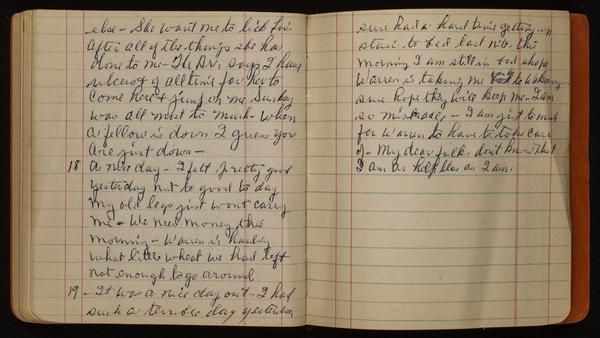 else - She want me to lick her
after all of the things she has
done to me - The Dr. says I have
ulcers & of all time for her to
come here & jump on me Sunday
was all most to much - when
a fellow is down I guess you
are just down -
18 A nice day - I felt pretty good
yesterday not to good to day
my old legs just wont carry
me - We need money this
morning - Warren is hauling
what little wheat we had left
not enough to go around
19 - It was a nice day out - I had
such a terrible day yesterday
sure had a hard time getting up
stairs to bed last nite. this
morning I am still in bad shape
Warren is taking me to Wakeeney
sure hope they will keep me - I am
so miserable - I am just to much
for Warren to have to take care
of - My dear folks don't know that
I am as helpless as I am.